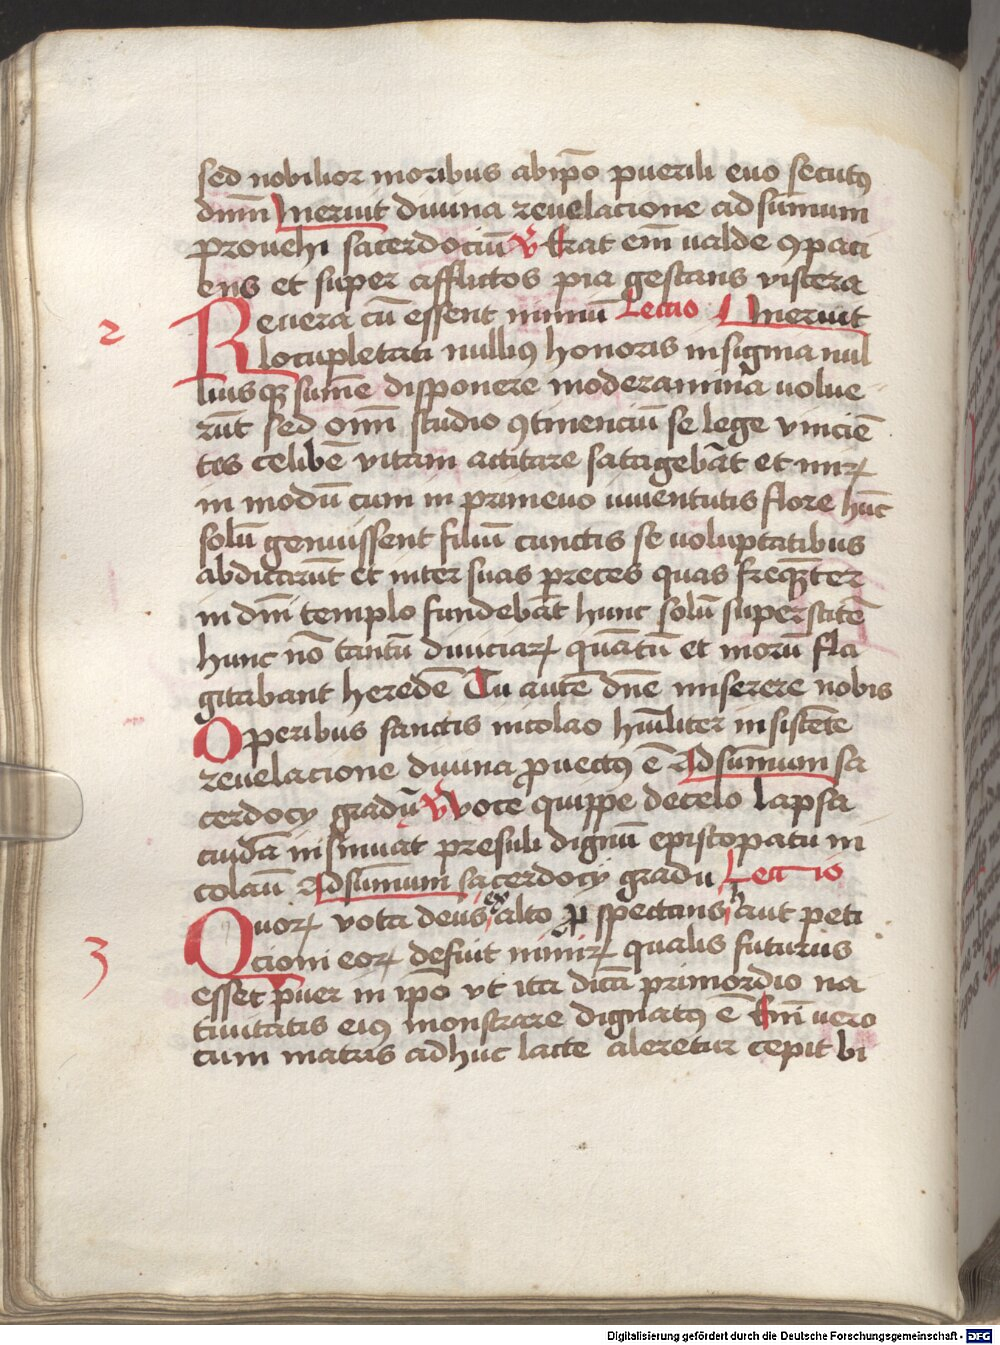 sed nobilior moribus ab ip̄o puerili euo secutꝰ
dnm̄ Meruit diuina reuelacione ad sum̄um
prouehi sacerdociū V̄ Erat em̄ valde ꝯpaci
ens et super afflictos pia gestans viscera
2 Reuera cū essent nimiū Lectio Meruit
locupletati nulliꝰ honoris insignia nul
liusqꝫ sum̄e disponere moderamina volue
rūt sed om̄i studio ꝯtinenciū se lege vinciē
tes celibē vitam actitare satagebāt et mirꝝ
in modū cum in primeuo iuuentutis flore hūc
solū genuissent filiū cunctis se voluptatibus
abdicarūt et inter suas preces quas freqn̄ter
in dn̄i templo fundebāt hunc solū superstitē
hunc nō tantū diuiciaꝝ quātū et morū fla
gitabant heredē Tu autē dn̄e miserere nobis
Operibus sanctis nicolao hūiliter insistēte
reuelacione diuina ꝓuectꝰ ē Ad sum̄um sa
cerdocy gradū V̄ Voce quippe de celo lapsa
cuidā insinuat presuli dignū episcopatu ni
colaū Ad sum̄um sacerdocy gradu Lectio
3 Quoꝝ vota deus ex alto ꝓspectans haut peti
cioni eoꝝ defuit nimiꝝ qualis futurus
esset puer in ip̄o vt ita dicā primordio na
tiuitatis eiꝰ monstrare dignatꝰ ē Em̄ vero
cum matris adhuc lacte aleretur cepit bi
Digitalisierung gefördert durch die Deutsche Forschungsgemeinschaft - DFG